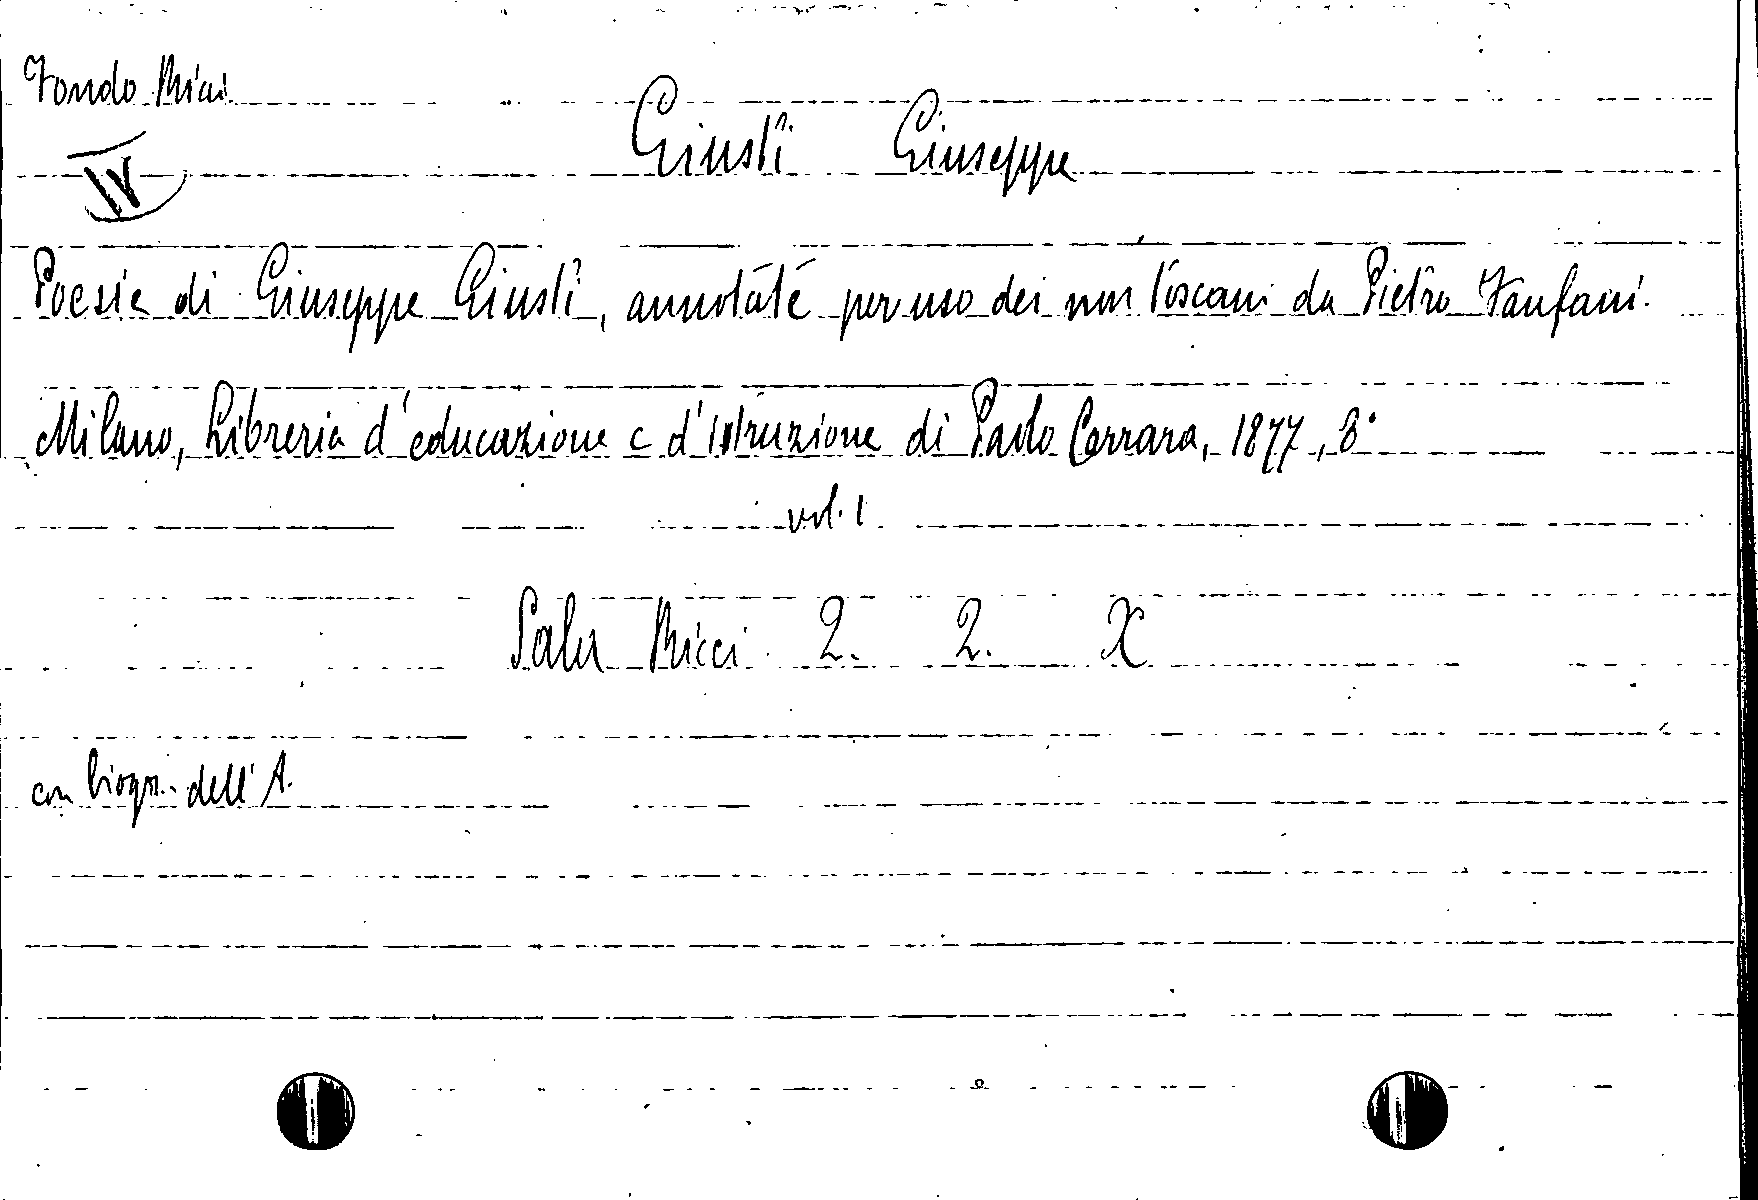 Fondo Ricci
Giusti Giuseppe
IV
Poesie di Giuseppe Giusti, annotate per uso dei non Toscani da Pietro Fanfani.
Milano, Libreria d'educazione e d'istruzione di Paolo Carrara, 1877, 8°
vol. 1
Sala Ricci 2. 2. X
con biogr. dell'A.